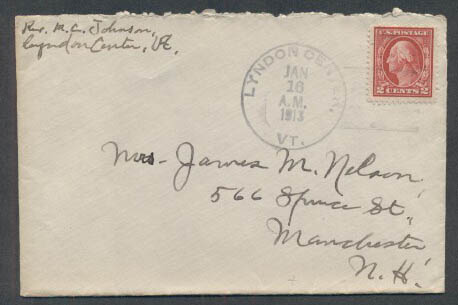 Rev. R. C. Johnson,
Lyndon Center, Vt.
LYNDON CENTER,
JAN
16
A.M.
1913
VT.
U.S. POSTAGE
2 CENTS 2
Mrs. James M. Nelson,
566 Spruce St.,
Manchester
N. H.